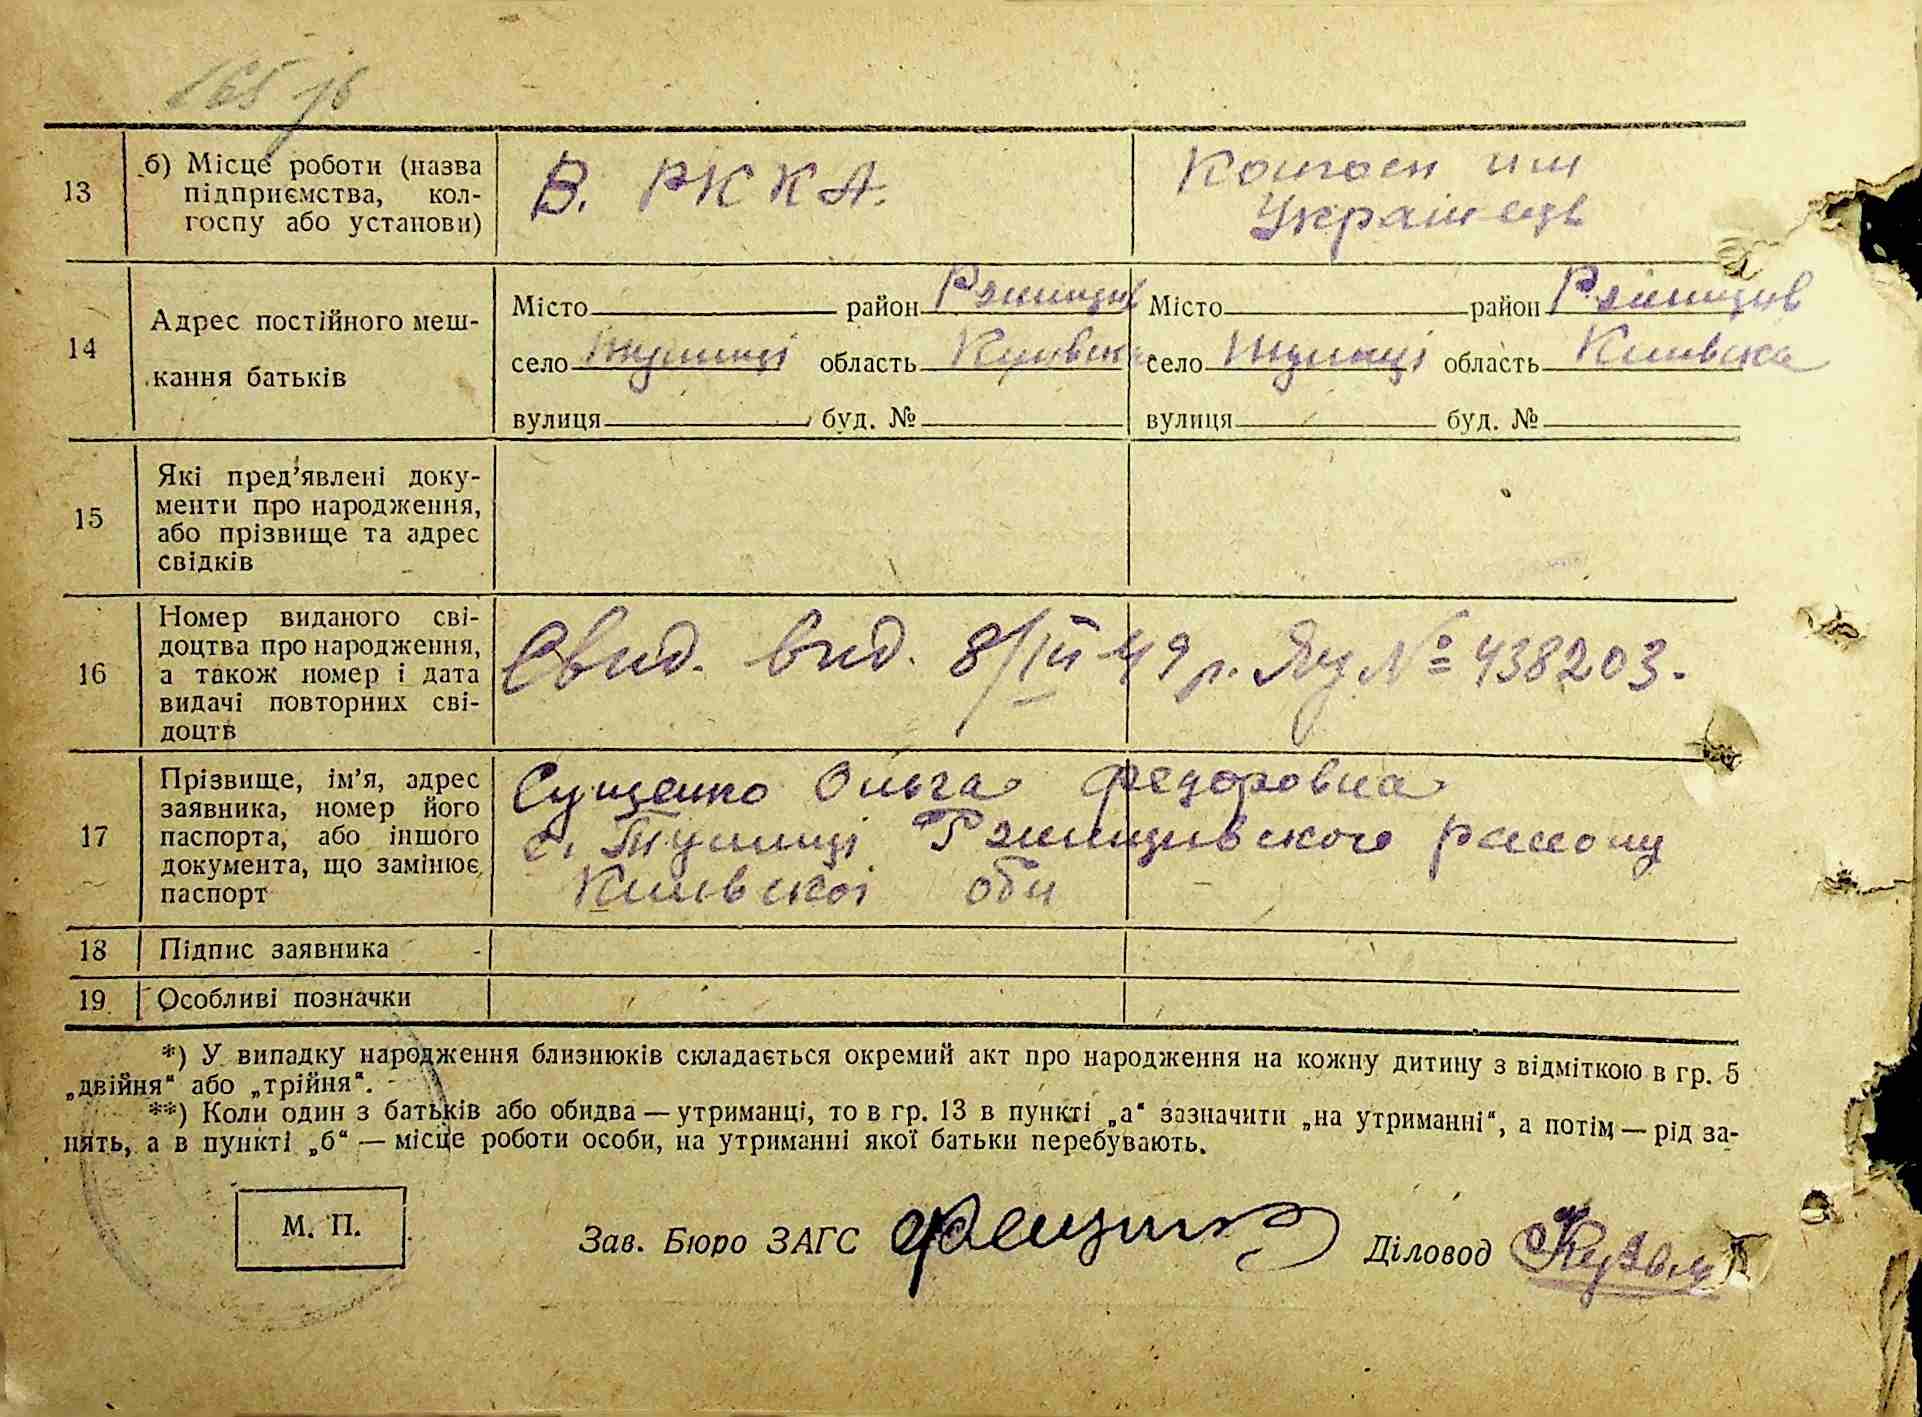 13 б) Місце роботи (назва підприємства, колгоспу або установи)
В. РККА.
Колгосп им
Украінець
14 Адрес постійного меш-
кання батьків
Місто район Ржищів Місто район Ржищів
село Тулинці область Київска село Тулинці область Київска
вулиця буд. № вулиця буд. №
15 Які пред’явлені доку-
менти про народження,
або прізвище та адрес
свідків
16 Номер виданого сві-
доцтва про народження,
а також номер і дата
видачі повторних сві-
доцтв
Свид. вид. 8/III 49 р. ЯУ № 438203.
17 Прізвище, ім’я, адрес
заявника, номер його
паспорта, або іншого
документа, що замінює
паспорт
Сущенко Ольга Федоровна
с. Тулинці Ржищивского району
Киівскоі обл
18 Підпис заявника
19 Особливі позначки
*) У випадку народження близнюків складається окремий акт про народження на кожну дитину з відміткою в гр. 5
„двійня“ або „трійня“.
**) Коли один з батьків або обидва — утриманці, то в гр. 13 в пункті „а“ зазначити „на утриманні“, а потім — рід за-
нять, а в пункті „б“ — місце роботи особи, на утриманні якої батьки перебувають.
М. П.
Зав. Бюро ЗАГС Діловод